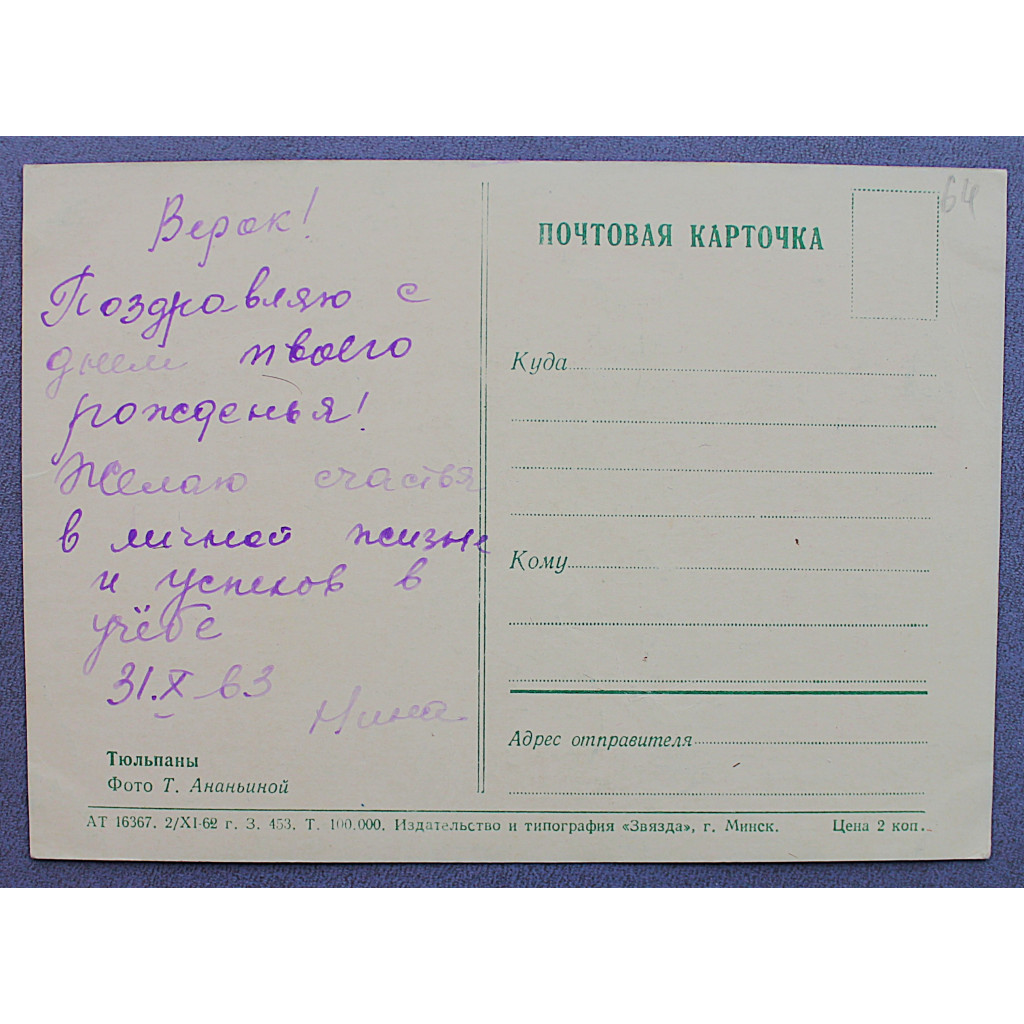 Верок!
Поздравляю с
днем твоего
рожденья!
Желаю счастья
в личной жизне
и успехов в
учёбе
31.X-63
Нина
Тюльпаны
Фото Т. Ананьиной
64
ПОЧТОВАЯ КАРТОЧКА
Куда
Кому
Адрес отправителя
АТ 16367. 2/XI-62 г. З. 453. Т. 100.000. Издательство и типография «Звязда», г. Минск. Цена 2 коп.